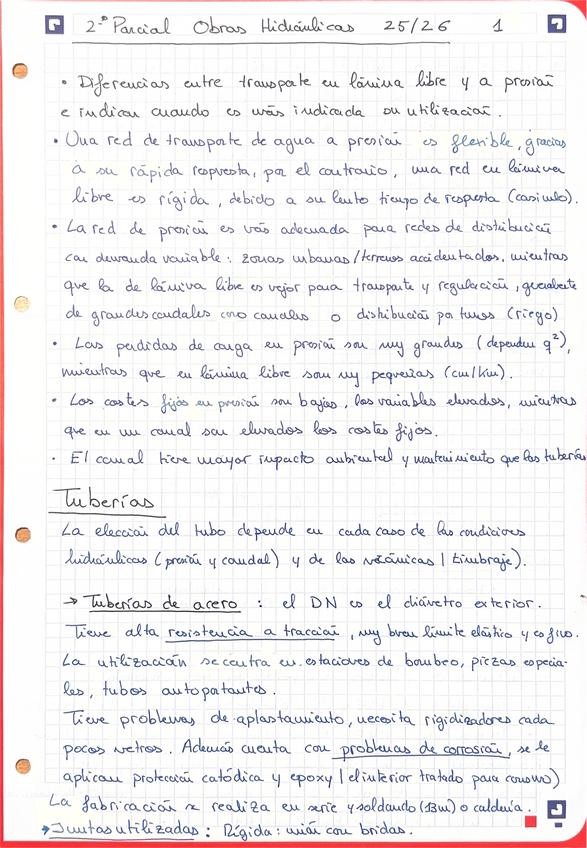 2º Parcial Obras Hidráulicas 25/26 1
• Diferencias entre transporte en lámina libre y a presión
e indicar cuando es más indicada su utilización.
• Una red de transporte de agua a presión es flexible, gracias
a su rápida respuesta, por el contrario, una red en lámina
libre es rígida, debido a su lento tiempo de respuesta (casi nulo).
• La red de presión es más adecuada para redes de distribución
con demanda variable: zonas urbanas/terrenos accidentados, mientras
que la de lámina libre es mejor para transporte y regulación, generalmente
de grandes caudales como canales o distribución por turnos (riego)
• Las perdidas de carga en presión son muy grandes (dependen q²),
mientras que en lámina libre son muy pequeñas (cm/km).
• Los costes fijos en presión son bajos, los variables elevados, mientras
que en un canal son elevados los costes fijos.
• El canal tiene mayor impacto ambiental y mantenimiento que las tuberías
Tuberías
La elección del tubo depende en cada caso de las condiciones
hidráulicas (presión y caudal) y de las mecánicas (timbraje).
→ Tuberías de acero : el DN es el diámetro exterior.
Tiene alta resistencia a tracción, muy buen límite elástico y es fino.
La utilización se centra en estaciones de bombeo, piezas especia-
les, tubos autoportantes.
Tiene problemas de aplastamiento, necesita rigidizadores cada
pocos metros. Además cuenta con problemas de corrosión, se le
aplican protección catódica y epoxy (el interior tratado para consumo)
La fabricación se realiza en serie y soldando (13m) o calderia.
→ Juntas utilizadas : Rígida : unión con bridas.